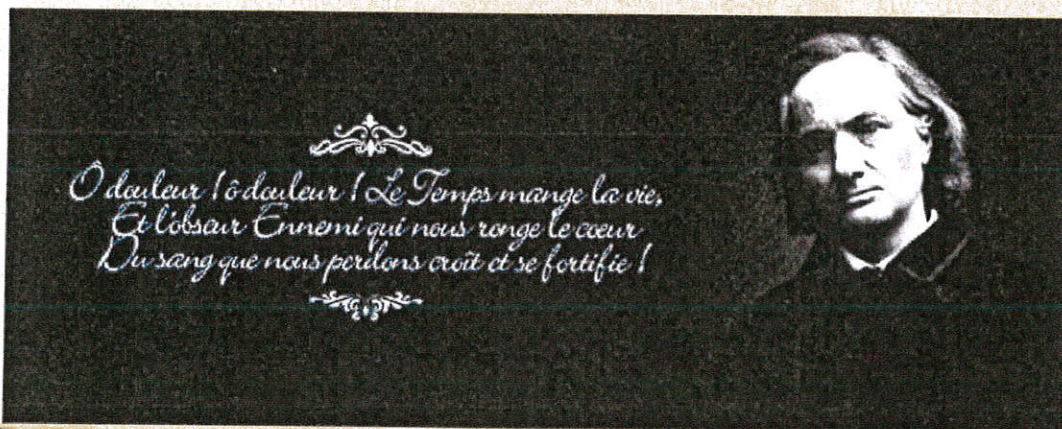 Ô douleur ! ô douleur ! Le Temps mange la vie,
Et l'obscur Ennemi qui nous ronge le cœur
Du sang que nous perdons croît et se fortifie !